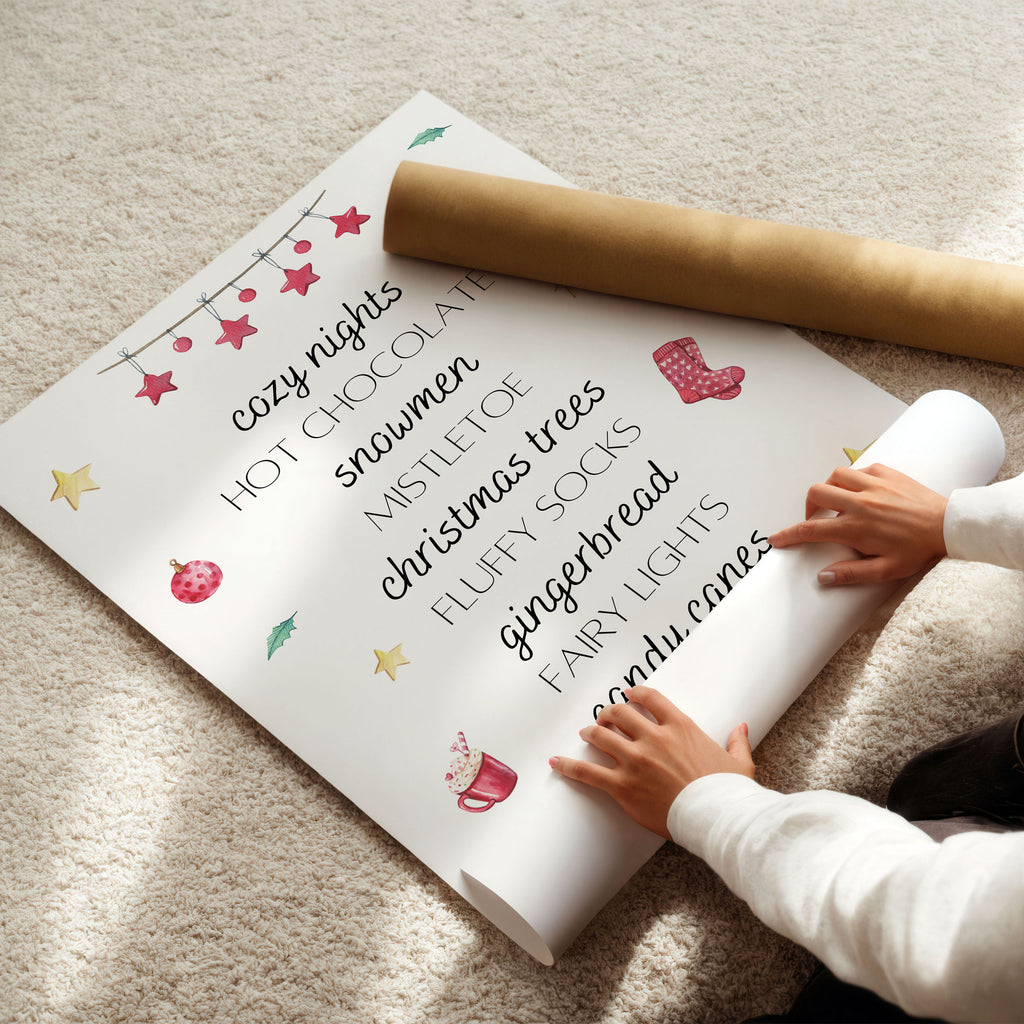 cozy nights
HOT CHOCOLATE
snowmen
MISTLETOE
christmas trees
FLUFFY SOCKS
gingerbread
FAIRY LIGHTS
candy canes